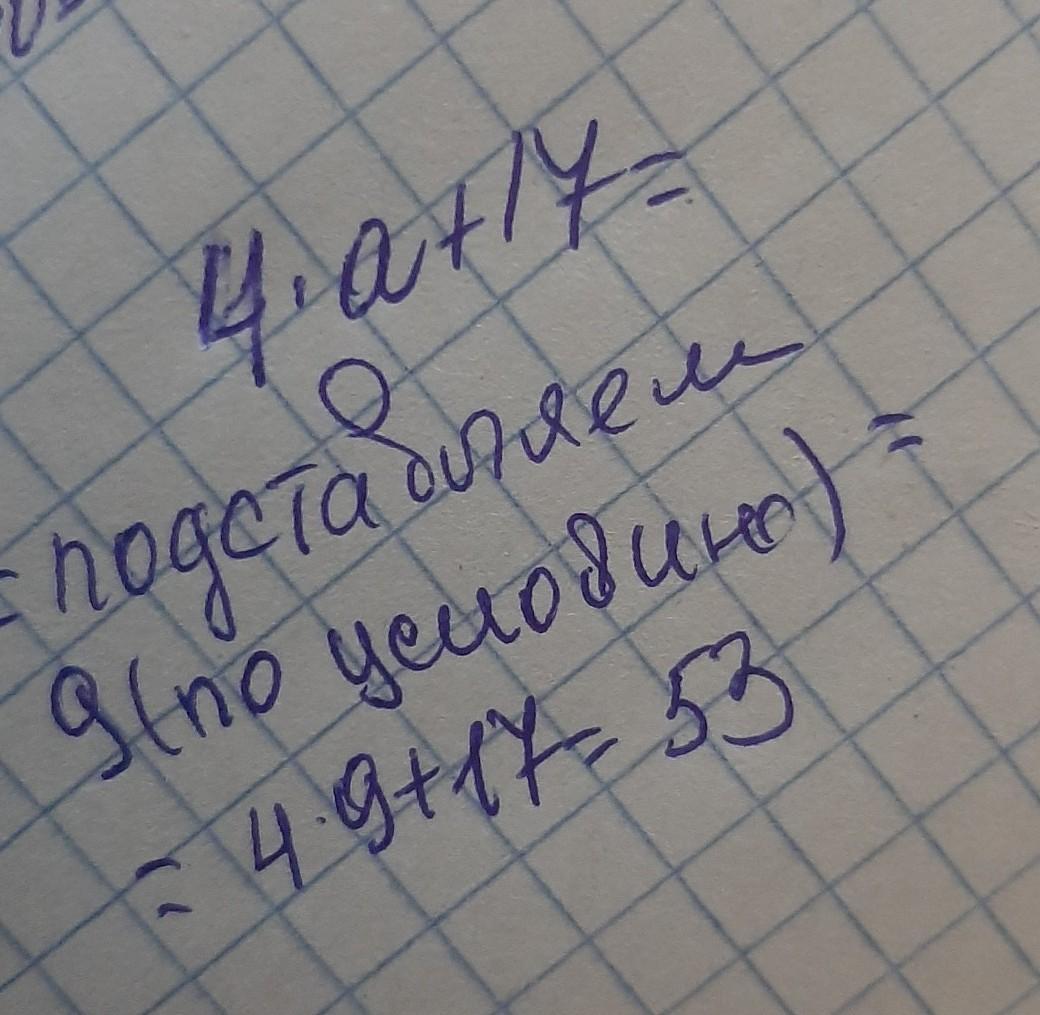 4·a+17=
=подставляем
9(по условию)=
=4·9+17=53